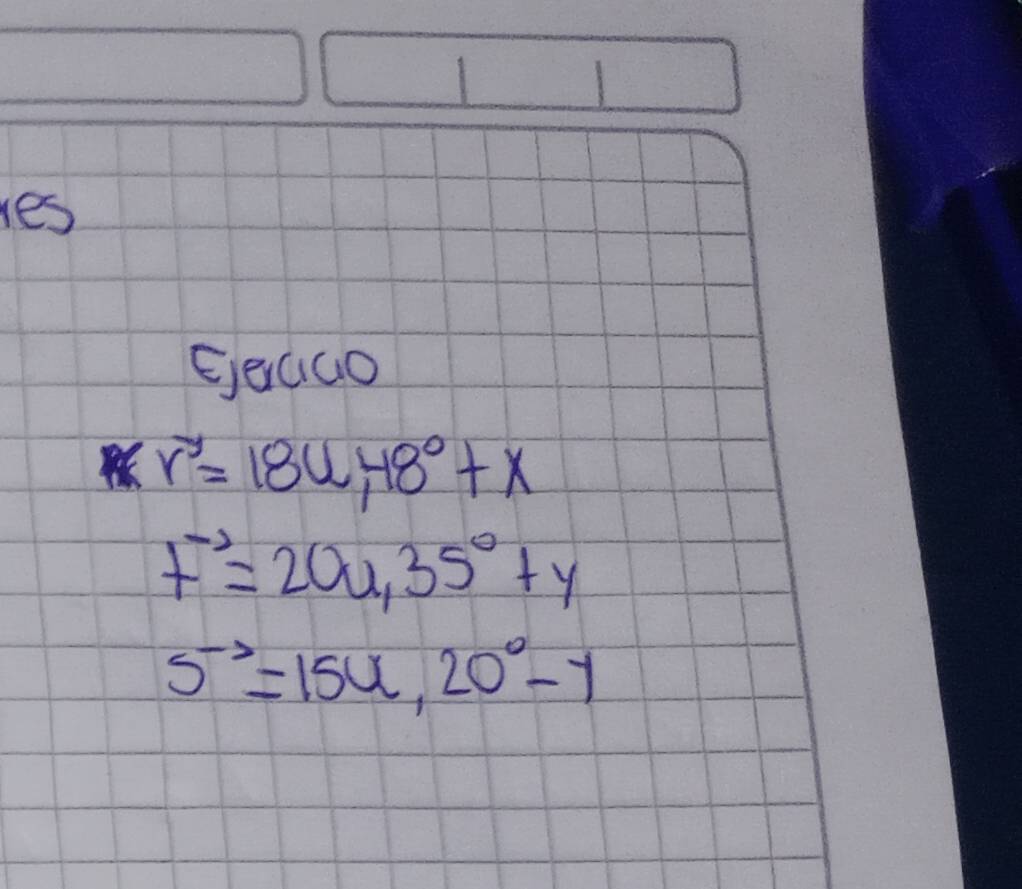 Ejercicio
r→= 18u, 48° + x
t→= 20u, 35° + y
s→= 15u, 20° - y